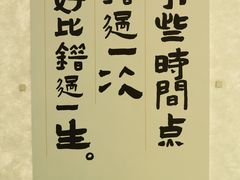 些時間点
錯過一次
好比錯過一生。